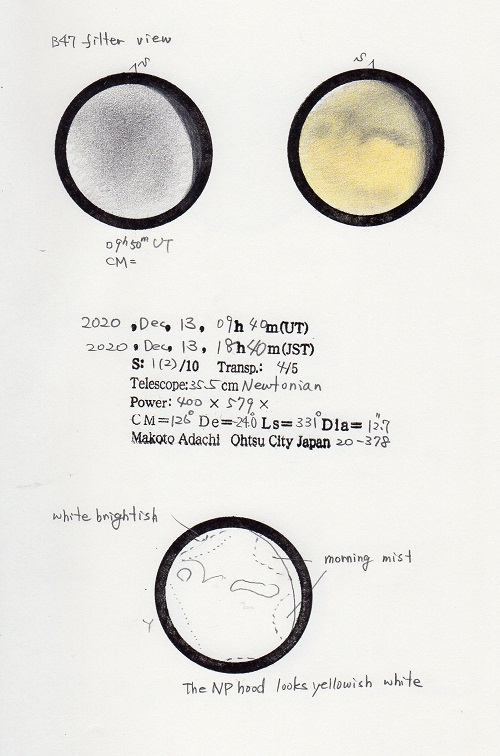 B47 filter view
S
S
09h50m UT
CM=
2020, Dec, 13, 09h 40m(UT)
2020, Dec, 13, 18h40m(JST)
S: 1(2)/10 Transp.: 4/5
Telescope:35.5cm Newtonian
Power: 400 × 579 ×
CM=126° De=-24.0° Ls=331° Dia= 12.7"
Makoto Adachi Ohtsu City Japan 20-378
white brightish
morning mist
Y
The NP hood looks yellowish white